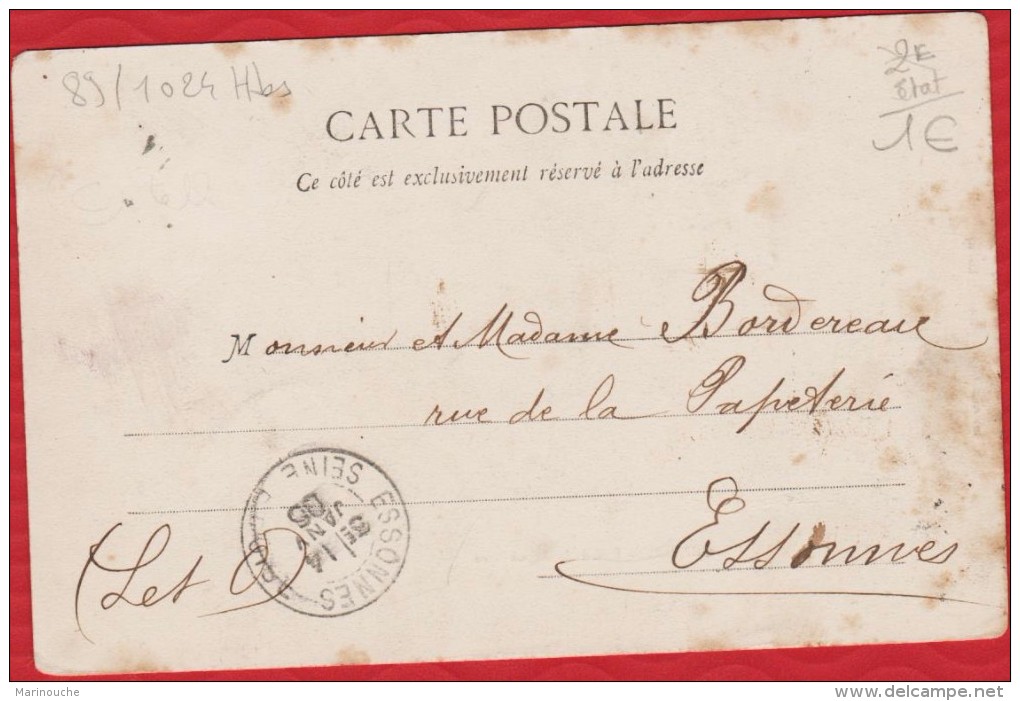 89/1024 Hbs
2E
état
1€
CARTE POSTALE
Ce côté est exclusivement réservé à l'adresse
Monsieur et Madame Bordereau
rue de la Papeterie
Essonnes
(Set O)
ESSONNES
SEINE
14
Marinouche
www.delcampe.net